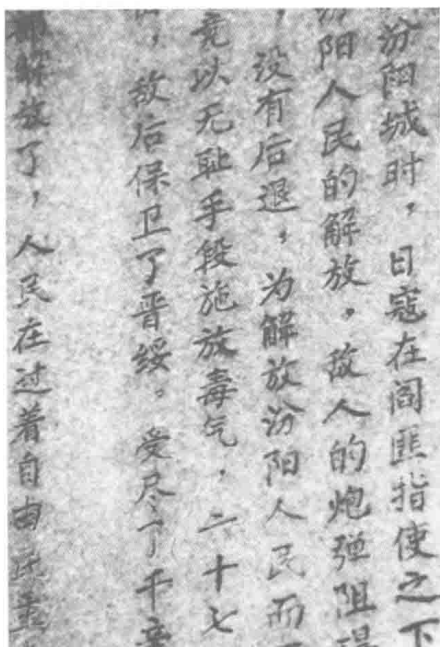 汾阳城时，日寇在阎匪指使之下
汾阳人民的解放。敌人的炮弹阻
，没有后退，为解放汾阳人民而
竟以无耻手段施放毒气，二十七
，敌后保卫了晋绥。受尽了千辛
都解放了，人民在过着自由